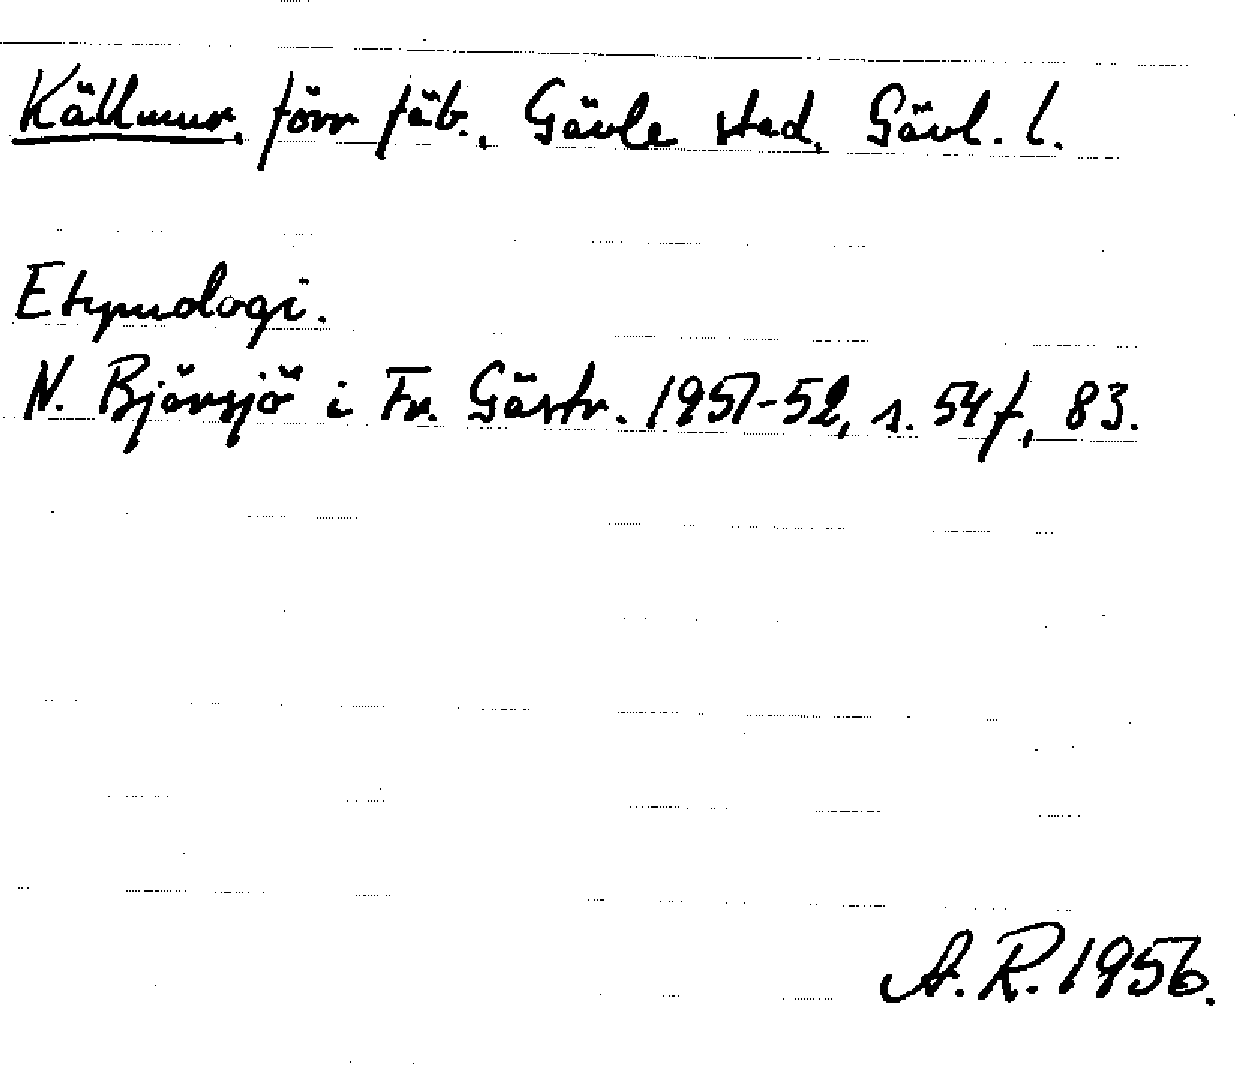 Källmur, förr fäb., Gävle stad, Gävl. l.
Etymologi.
N. Björsjö i Fr. Gästr. 1951-52, s. 54f, 83.
A.R. 1956.